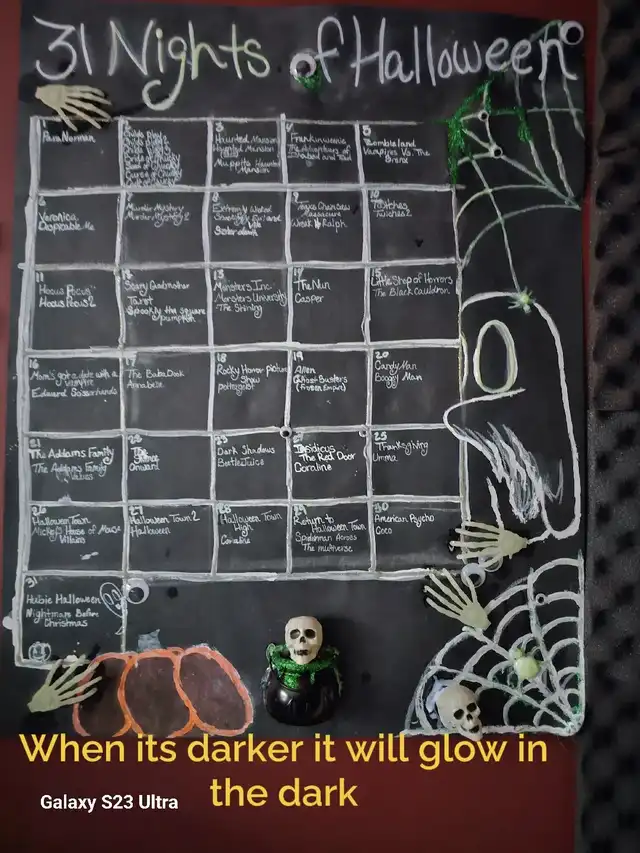 31 Nights of Halloween
1
ParaNorman
2
Childs Play
Childs Play 2
Childs Play 3
Bride of Chucky
Seed of Chucky
Curse of Chucky
Cult of Chucky
3
Haunted Mansion
Haunted Mansion
Muppits Haunted
Mansion
4
Frankenweenie
The Adventures of
Ichabod and Toad
5
Zombieland
Vampires Vs. The
Bronx
6
Veronica
Dispicable Me
Murder Mystery
Murder Mystery 2
8
Extremly Wicked
Shockingly Evil and
Vile
9
Texas Chainsaw
Massacure
Wreck It Ralph
10
Twitches
Twitches 2
11
Hocus Pocus
Hocus Pocus 2
12
Scary Godmother
Tarot
Spookly the square
pumpkin
13
Monsters Inc.
Monsters University
The Shining
14
The Nun
Casper
15
Little Shop of Horrors
The Black Cauldron
16
Mom's got a date with a
vampire
Edward
17
The BabaDook
Annabelle
18
Rocky Horror picture
Show
poltergeist
19
Alien
Ghost Busters
(Frozen Empire)
20
Candy Man
Boogey Man
21
The Addams Family
The Addams Family
Values
22
The
Onward
23
Dark Shadows
BeetleJuice
Insidious
The Red Door
Coraline
25
Thanksgiving
Umma
26
Halloween Town
Mickey's House of Mouse
Villians
27
Halloween Town 2
Halloween
28
Halloween Town
High
Coraline
29
Return to
Halloween Town
Spiderman Across
The multiverse
30
American Psycho
Coco
31
Hubie Halloween
Nightmare Before
Christmas
When its darker it will glow in
the dark
Galaxy S23 Ultra